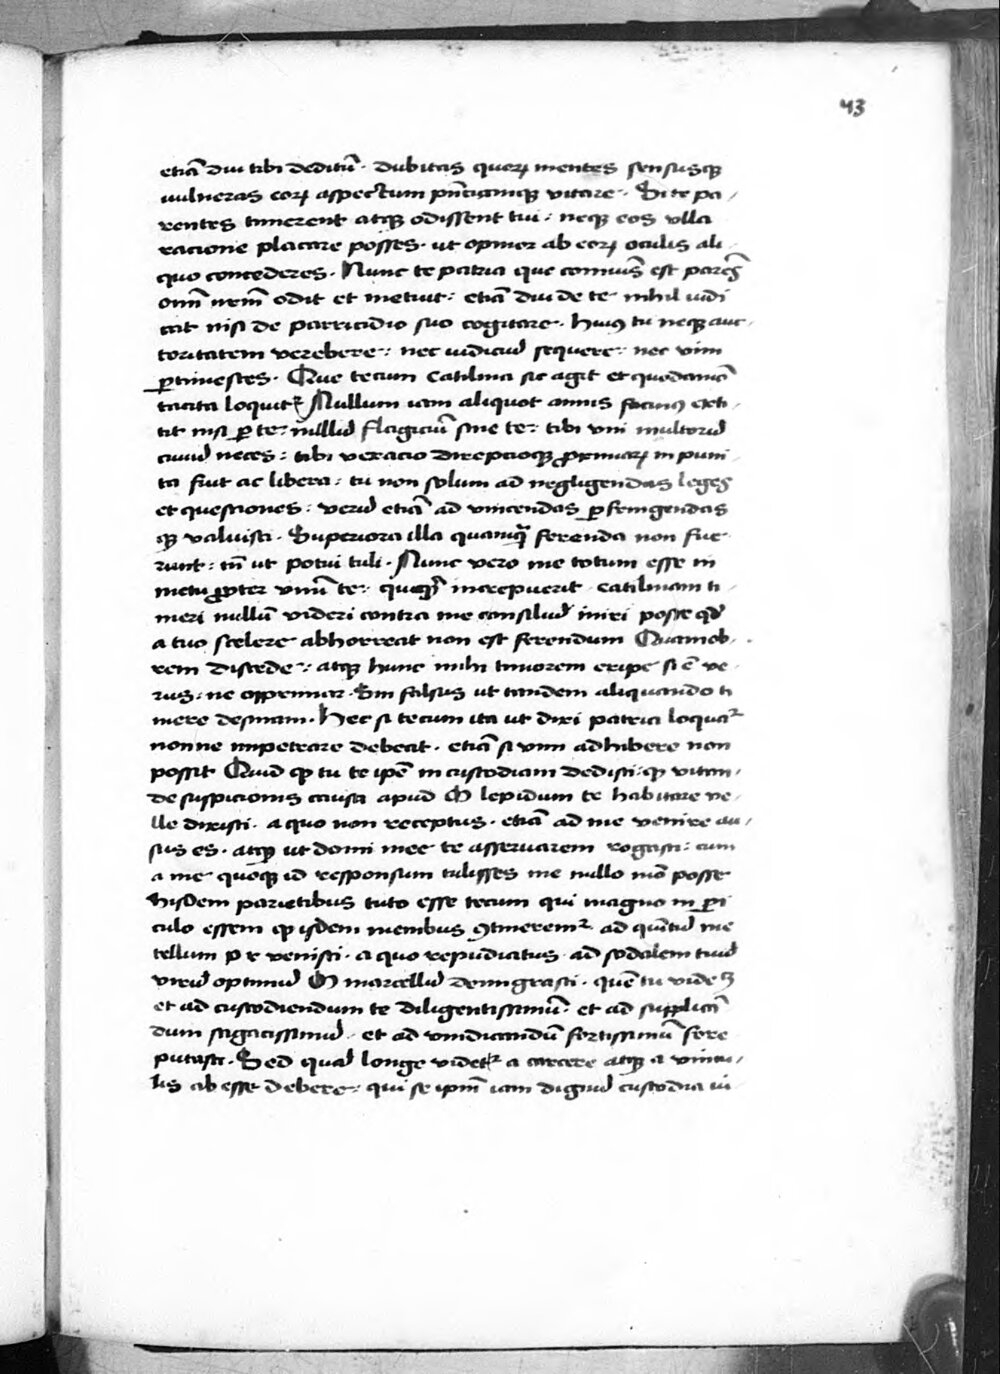 43
etiā diu tibi deditū · dubitas quoꝝ mentes sensusqꝫ
uulneras eoꝝ aspectum pn̄ciamqꝫ vitare · Si te pa /
rentes timerent atqꝫ odissent tui : neqꝫ eos vlla
racione placare posses · ut opinor ab eoꝝ oculis ali /
quo concederes · Nunc te patria que cōmuis est parēs
omn̄ nrm̄ odit et metuit : etiā diu de te nihil iudi
cat nisi de parricidio suo cogitare · huiꝰ tu neqꝫ auc /
toritatem verebere : nec iudiciū sequere : nec vim
ꝑtimesces · Que tecum Catilina sic agit et quodamō
tacita loquit᷑ Nullum iam aliquot annis facinꝰ exti /
tit nisi ꝑ te : nullū flagiciū sine te : tibi vni multorū
ciuiū neces : tibi vexacio direpcioqꝫ ꝓximaꝝ in puni /
ta fuit ac libera : tu non solum ad negligendas leges
et questiones : verū etiā ad vincendas ꝑfringendas
qꝫ valuisti · Superiora illa quamqͣ ferenda non fue
runt : tn̄ ut potui tuli · Nunc vero me totum esse in
metu ꝓpter vnū te : quicqͥd increpuerit · catilinam ti /
meri nullū videri contra me consiliū iniri posse qđ
a tuo scelere abhorreat non est ferendum Quamob /
rem discede : atqꝫ hunc mihi timorem eripe si ē ve /
rus : ne opprimar · Sin falsus ut tandem aliquando ti
mere desinam · Hec si tecum ita ut dixi patria loquat᷑
nonne impetrare debeat · etiā si vim adhibere non
possit Quid qꝫ tu te ipē in custodiam dedisti : qꝫ vitan /
de suspicionis causa apud M lepidum te habitare ve /
lle dixisti · a quo non receptus · etiā ad me venire au /
sus es · atqꝫ ut domi mee te asseruarem rogasti : cum
a me quoqꝫ id responsum tulisses me nullo mō posse
hisdem parietibus tuto esse tecum qui magno in ꝑi
culo essem qꝫ isdem menibus ꝯtineremᷣ · ad quintū me
tellum p r venisti · a quo repudiatus · ad sodalem tuū
virū optimū M marcellū demigrasti · quē tu videꝫ
et ad custodiendum te diligentissimū · et ad supplican̄
dum sagacissimū · et ad vindicandū fortissimū fore
putasti · Sed quā longe videt᷑ a carcere atqꝫ a vincu /
lis ab esse debere : qui se ipm̄ iam dignū custodia iu